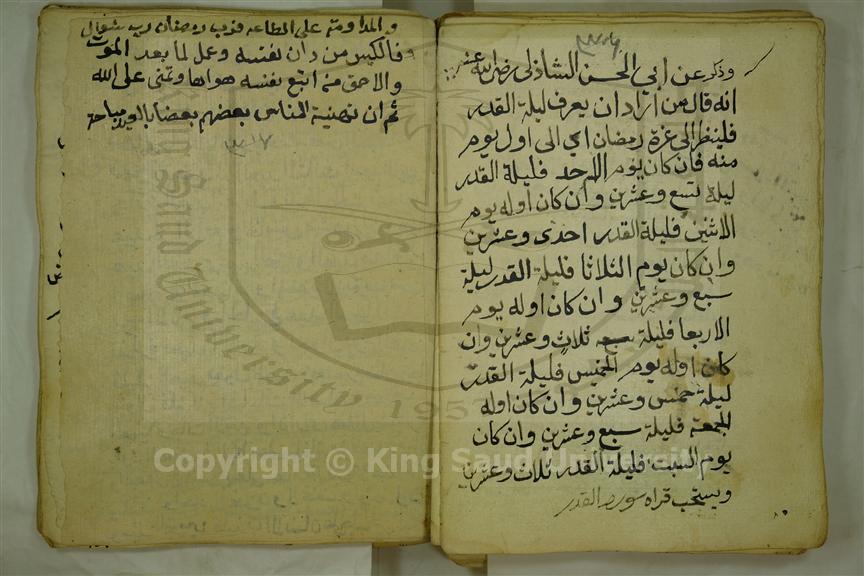 وذكر عن ابي الحسن الشاذلي رضي الله عنه
انه قال من اراد ان يعرف ليلة القدر
فلينظر الى غرة رمضان اي الى اول يوم
منه فان كان يوم الاحد فليلة القدر
ليلة تسع وعشرين وان كان اوله يوم
الاثنين فليلة القدر احدى وعشرين
وان كان يوم الثلاثا فليلة القدر ليلة
سبع وعشرين وان كان اوله يوم
الاربعا فليلة ثلاث وعشرين وان
كان اوله يوم الخميس فليلة القدر
ليلة خمس وعشرين وان كان اوله
الجمعة فليلة سبع وعشرين وان كان
يوم السبت فليلة القدر ثلاث وعشرين
ويستحب قراة سورة القدر
والمداومة على الطاعة فرب رمضان رب شوال
فالكيس من دان نفسه وعمل لما بعد الموت
والاحمق من اتبع نفسه هواها وتمنى على الله
ثم ان تهنية الناس بعضهم بعضا بالعيد مباحة
٣٣١٧
King Saud University
1957
Copyright © King Saud University